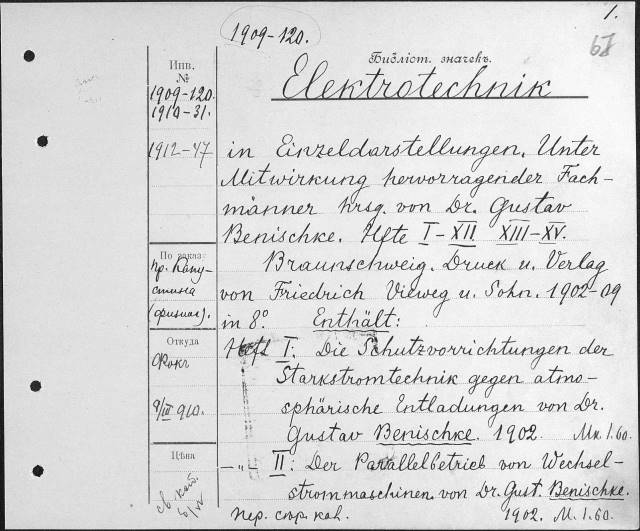 1.
1909-120.
Библіот. значекъ.
Elektrotechnik
Инв.
№
1909-120.
1910-31.
1912-47
in Einzeldarstellungen. Unter
Mitwirkung hervorragender Fach-
männer hrsg. von Dr. Gustav
Benischke. Hfte I-XII. XIII-XV.
По заказ.
пр. Капу-
стина
(физик).
Braunschweig. Druck u. Verlag
von Friedrich Vieweg u. Sohn. 1902-09
in 8º. Enthält:
Откуда
Heft I: Die Schutzvorrichtungen der
Starkstromtechnik gegen atmo-
sphärische Entladungen von Dr.
Gustav Benischke. 1902. Mk. 1.60.
9/III 910.
Цѣна
—„— II: Der Parallelbetrieb von Wechsel-
strommaschinen von Dr. Gust. Benischke.
1902. M. 1.60.